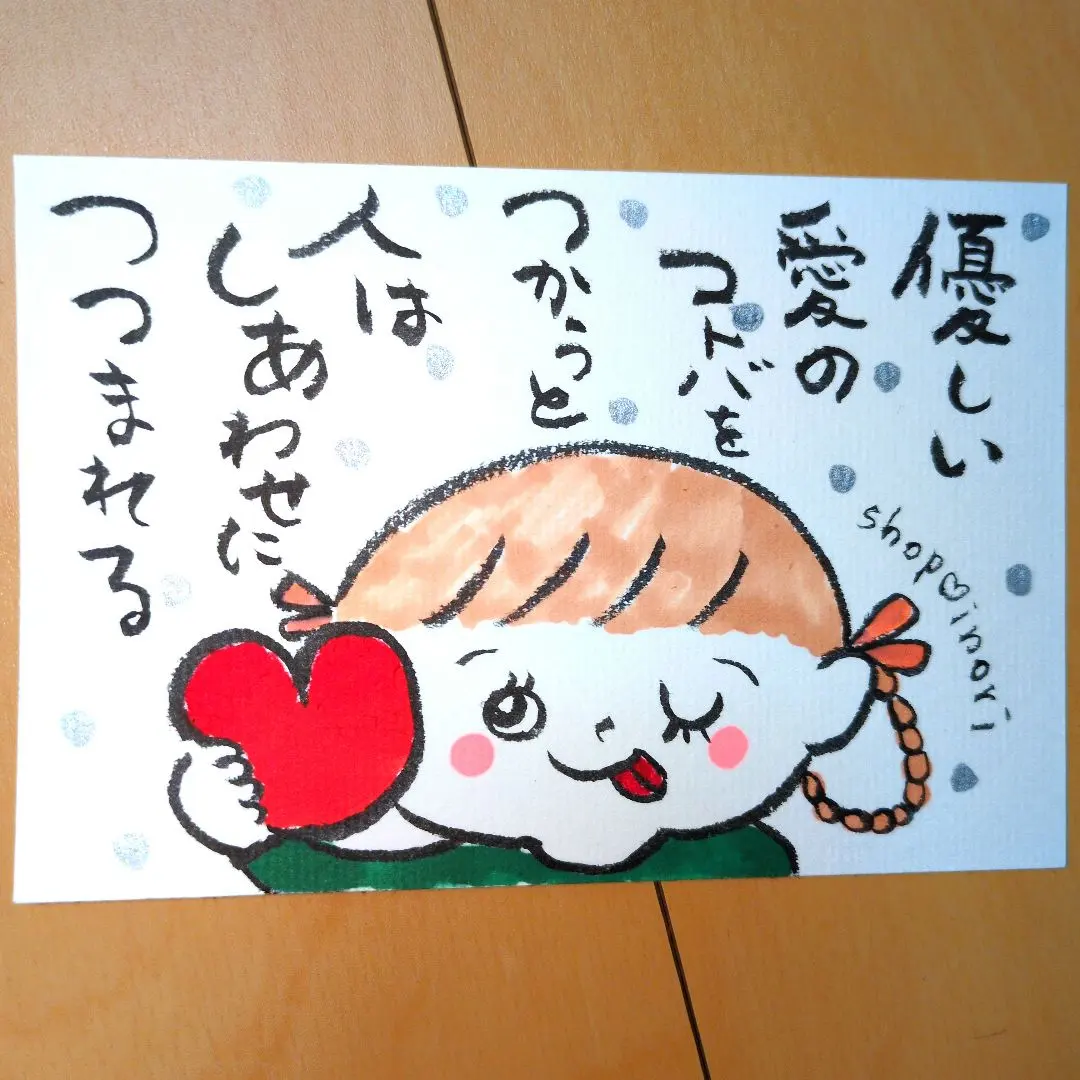 優しい
愛の
コトバを
つかうと
人は
しあわせに
つつまれる
shop♡inori